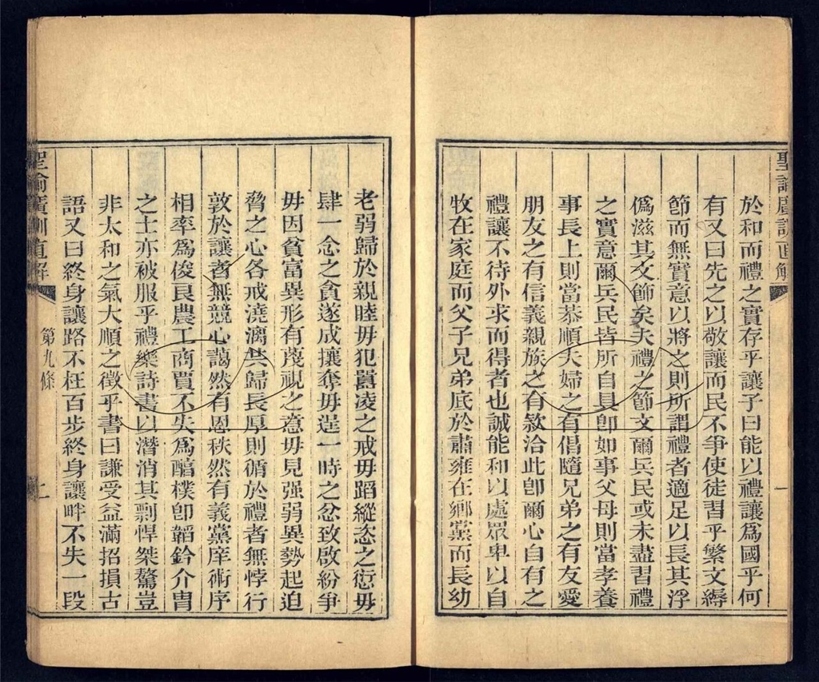 聖諭廣訓直解
一
於和而禮之實存乎讓子曰能以禮讓爲國乎何
有又曰先之以敬讓而民不爭使徒習乎繁文縟
節而無實意以將之則所謂禮者適足以長其浮
僞滋其文飾矣夫禮之節文爾兵民或未盡習禮
之實意爾兵民皆所自具卽如事父母則當孝養
事長上則當恭順夫婦之有倡隨兄弟之有友愛
朋友之有信義親族之有款洽此卽爾心自有之
禮讓不待外求而得者也誠能和以處眾卑以自
牧在家庭而父子兄弟底於肅雍在鄉黨而長幼
老弱歸於親睦毋犯囂凌之戒毋蹈縱恣之愆毋
肆一念之貪遂成攘奪毋逞一時之忿致啟紛爭
毋因貧富異形有蔑視之意毋見强弱異勢起迫
脅之心各戒澆漓共歸長厚則循於禮者無悖行
敦於讓者無競心藹然有恩秩然有義黨庠術序
相率爲俊良農工商賈不失爲醕樸卽韜鈐介冑
之士亦被服乎禮樂詩書以潛消其剽悍桀驁豈
非太和之氣大順之徵乎書曰謙受益滿招損古
語又曰終身讓路不枉百步終身讓畔不失一段
聖諭廣訓直解
第九條
二